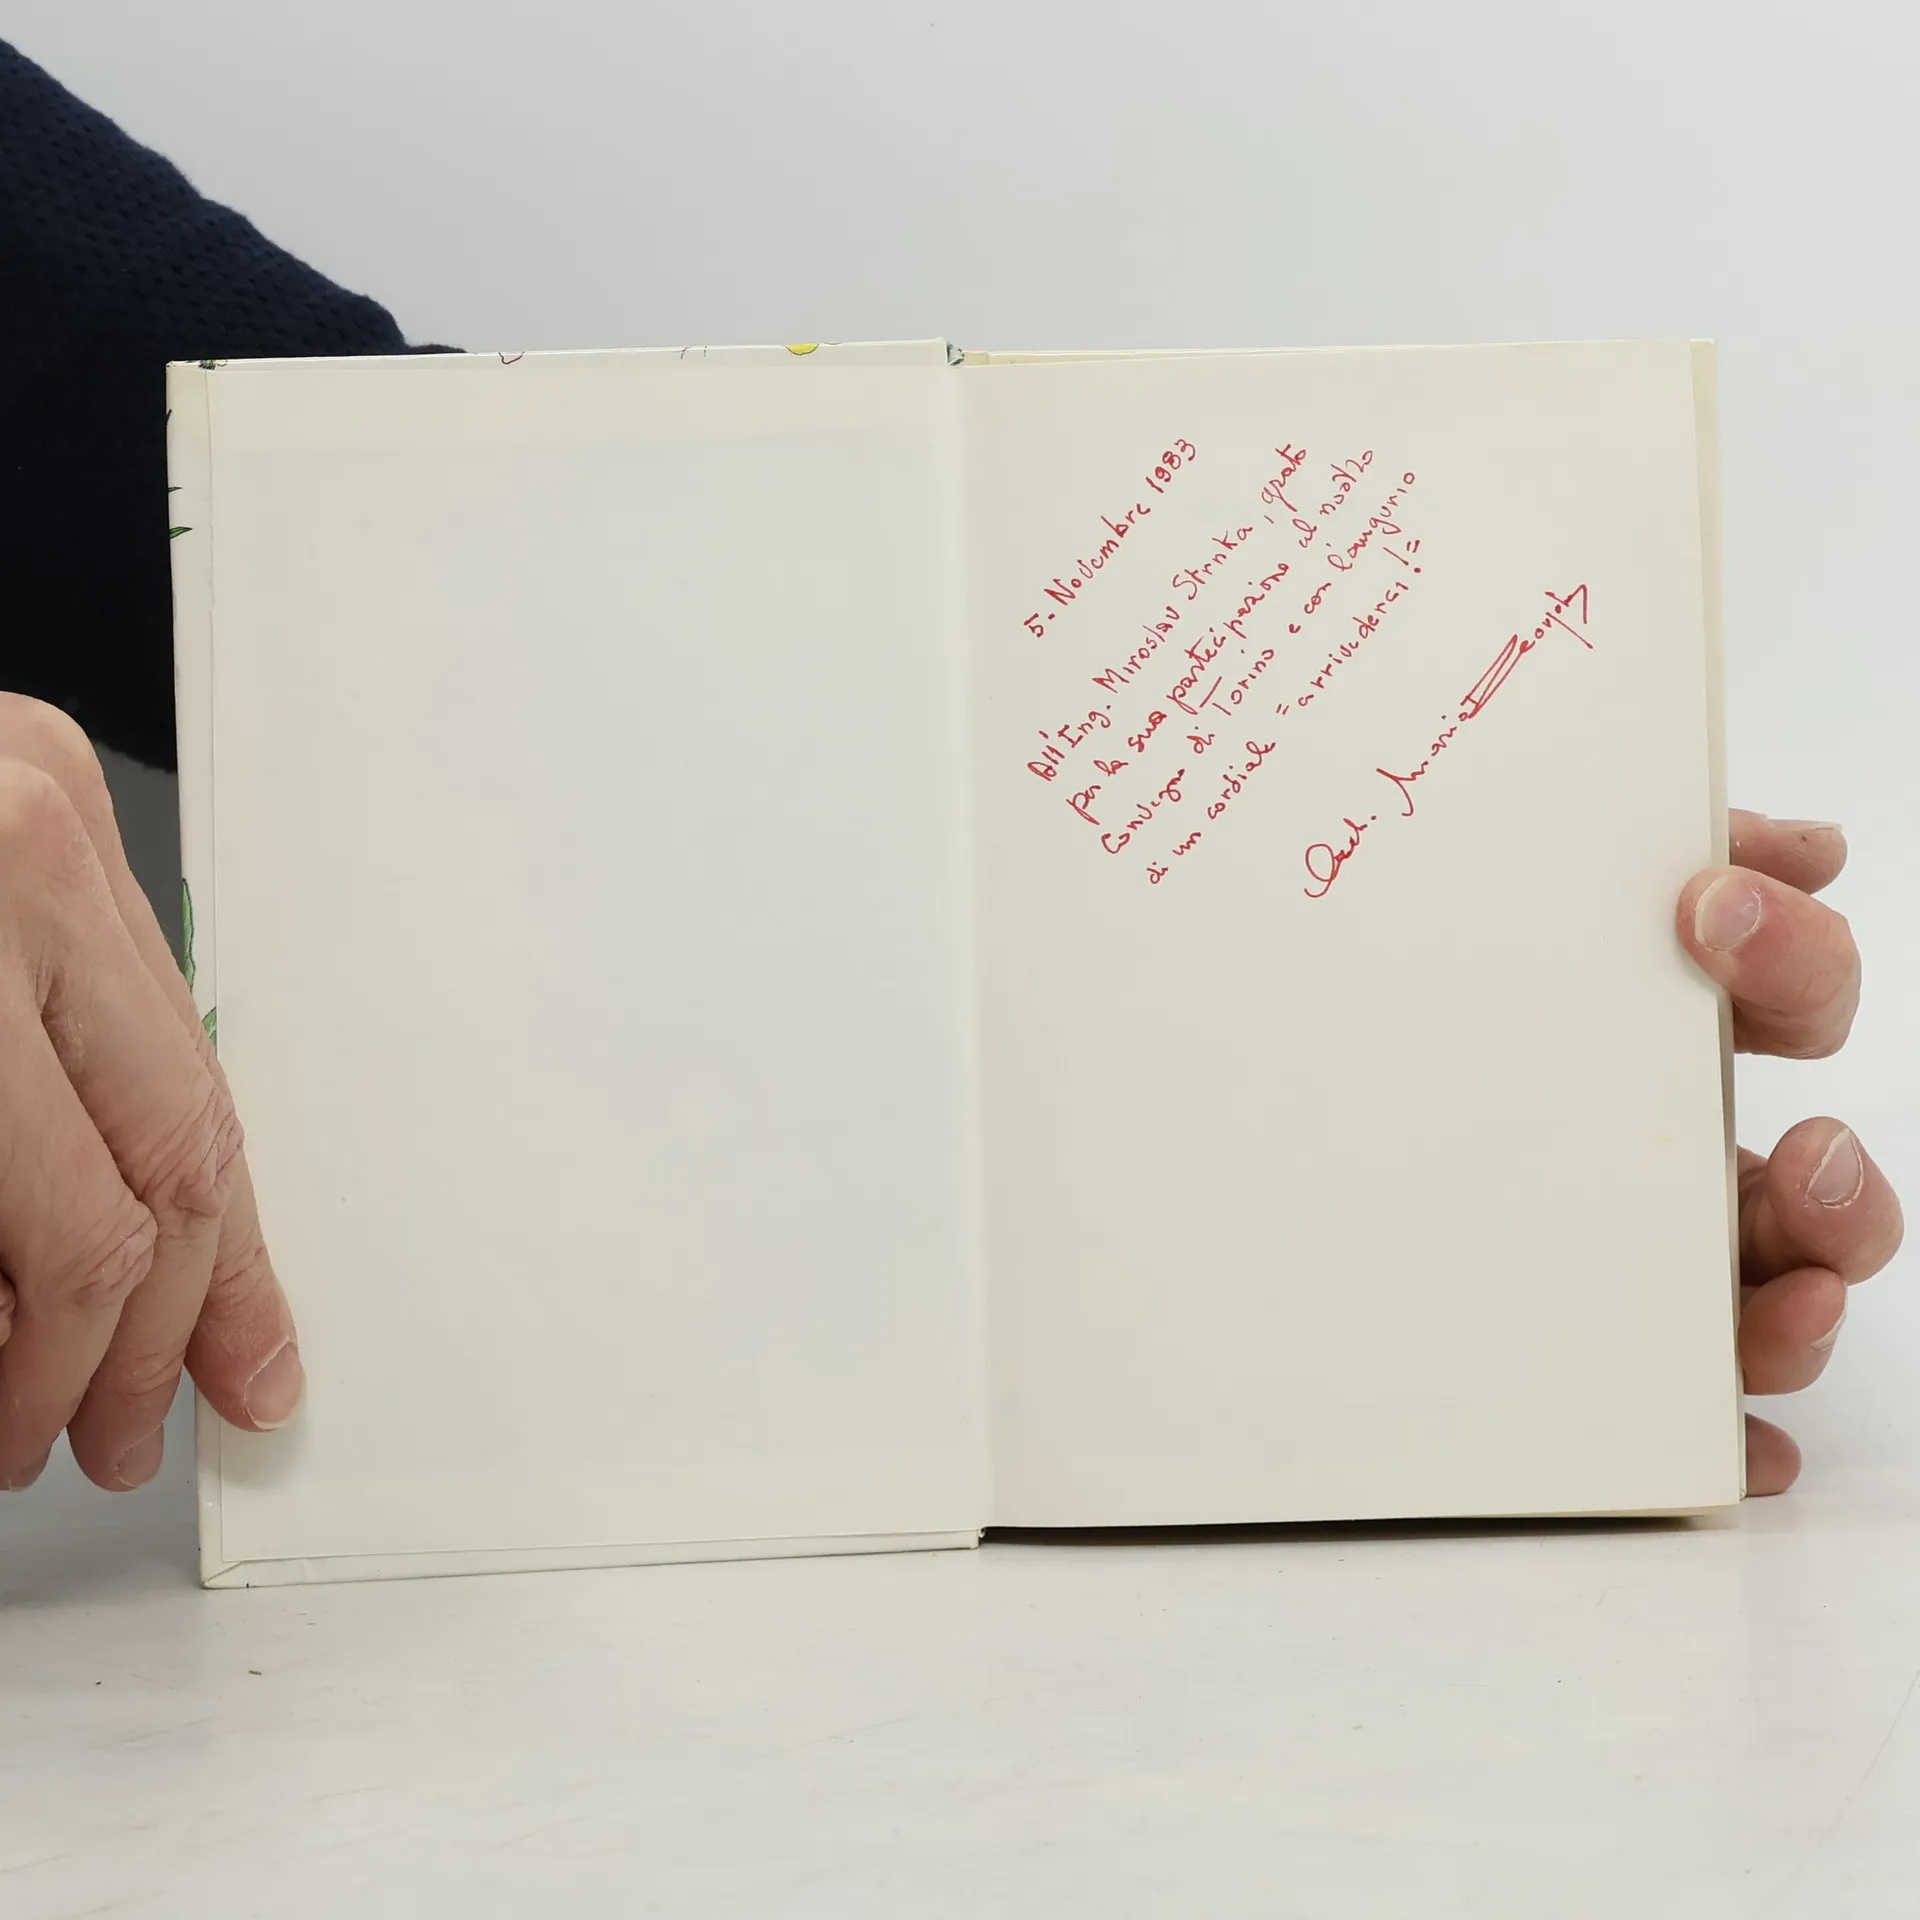 5. Novembre 1983
All'Ing. Miroslav Strnka, grato
per la sua partecipazione al nostro
Convegno di Torino e con l'augurio
di un cordiale = arrivederci! =
Mario